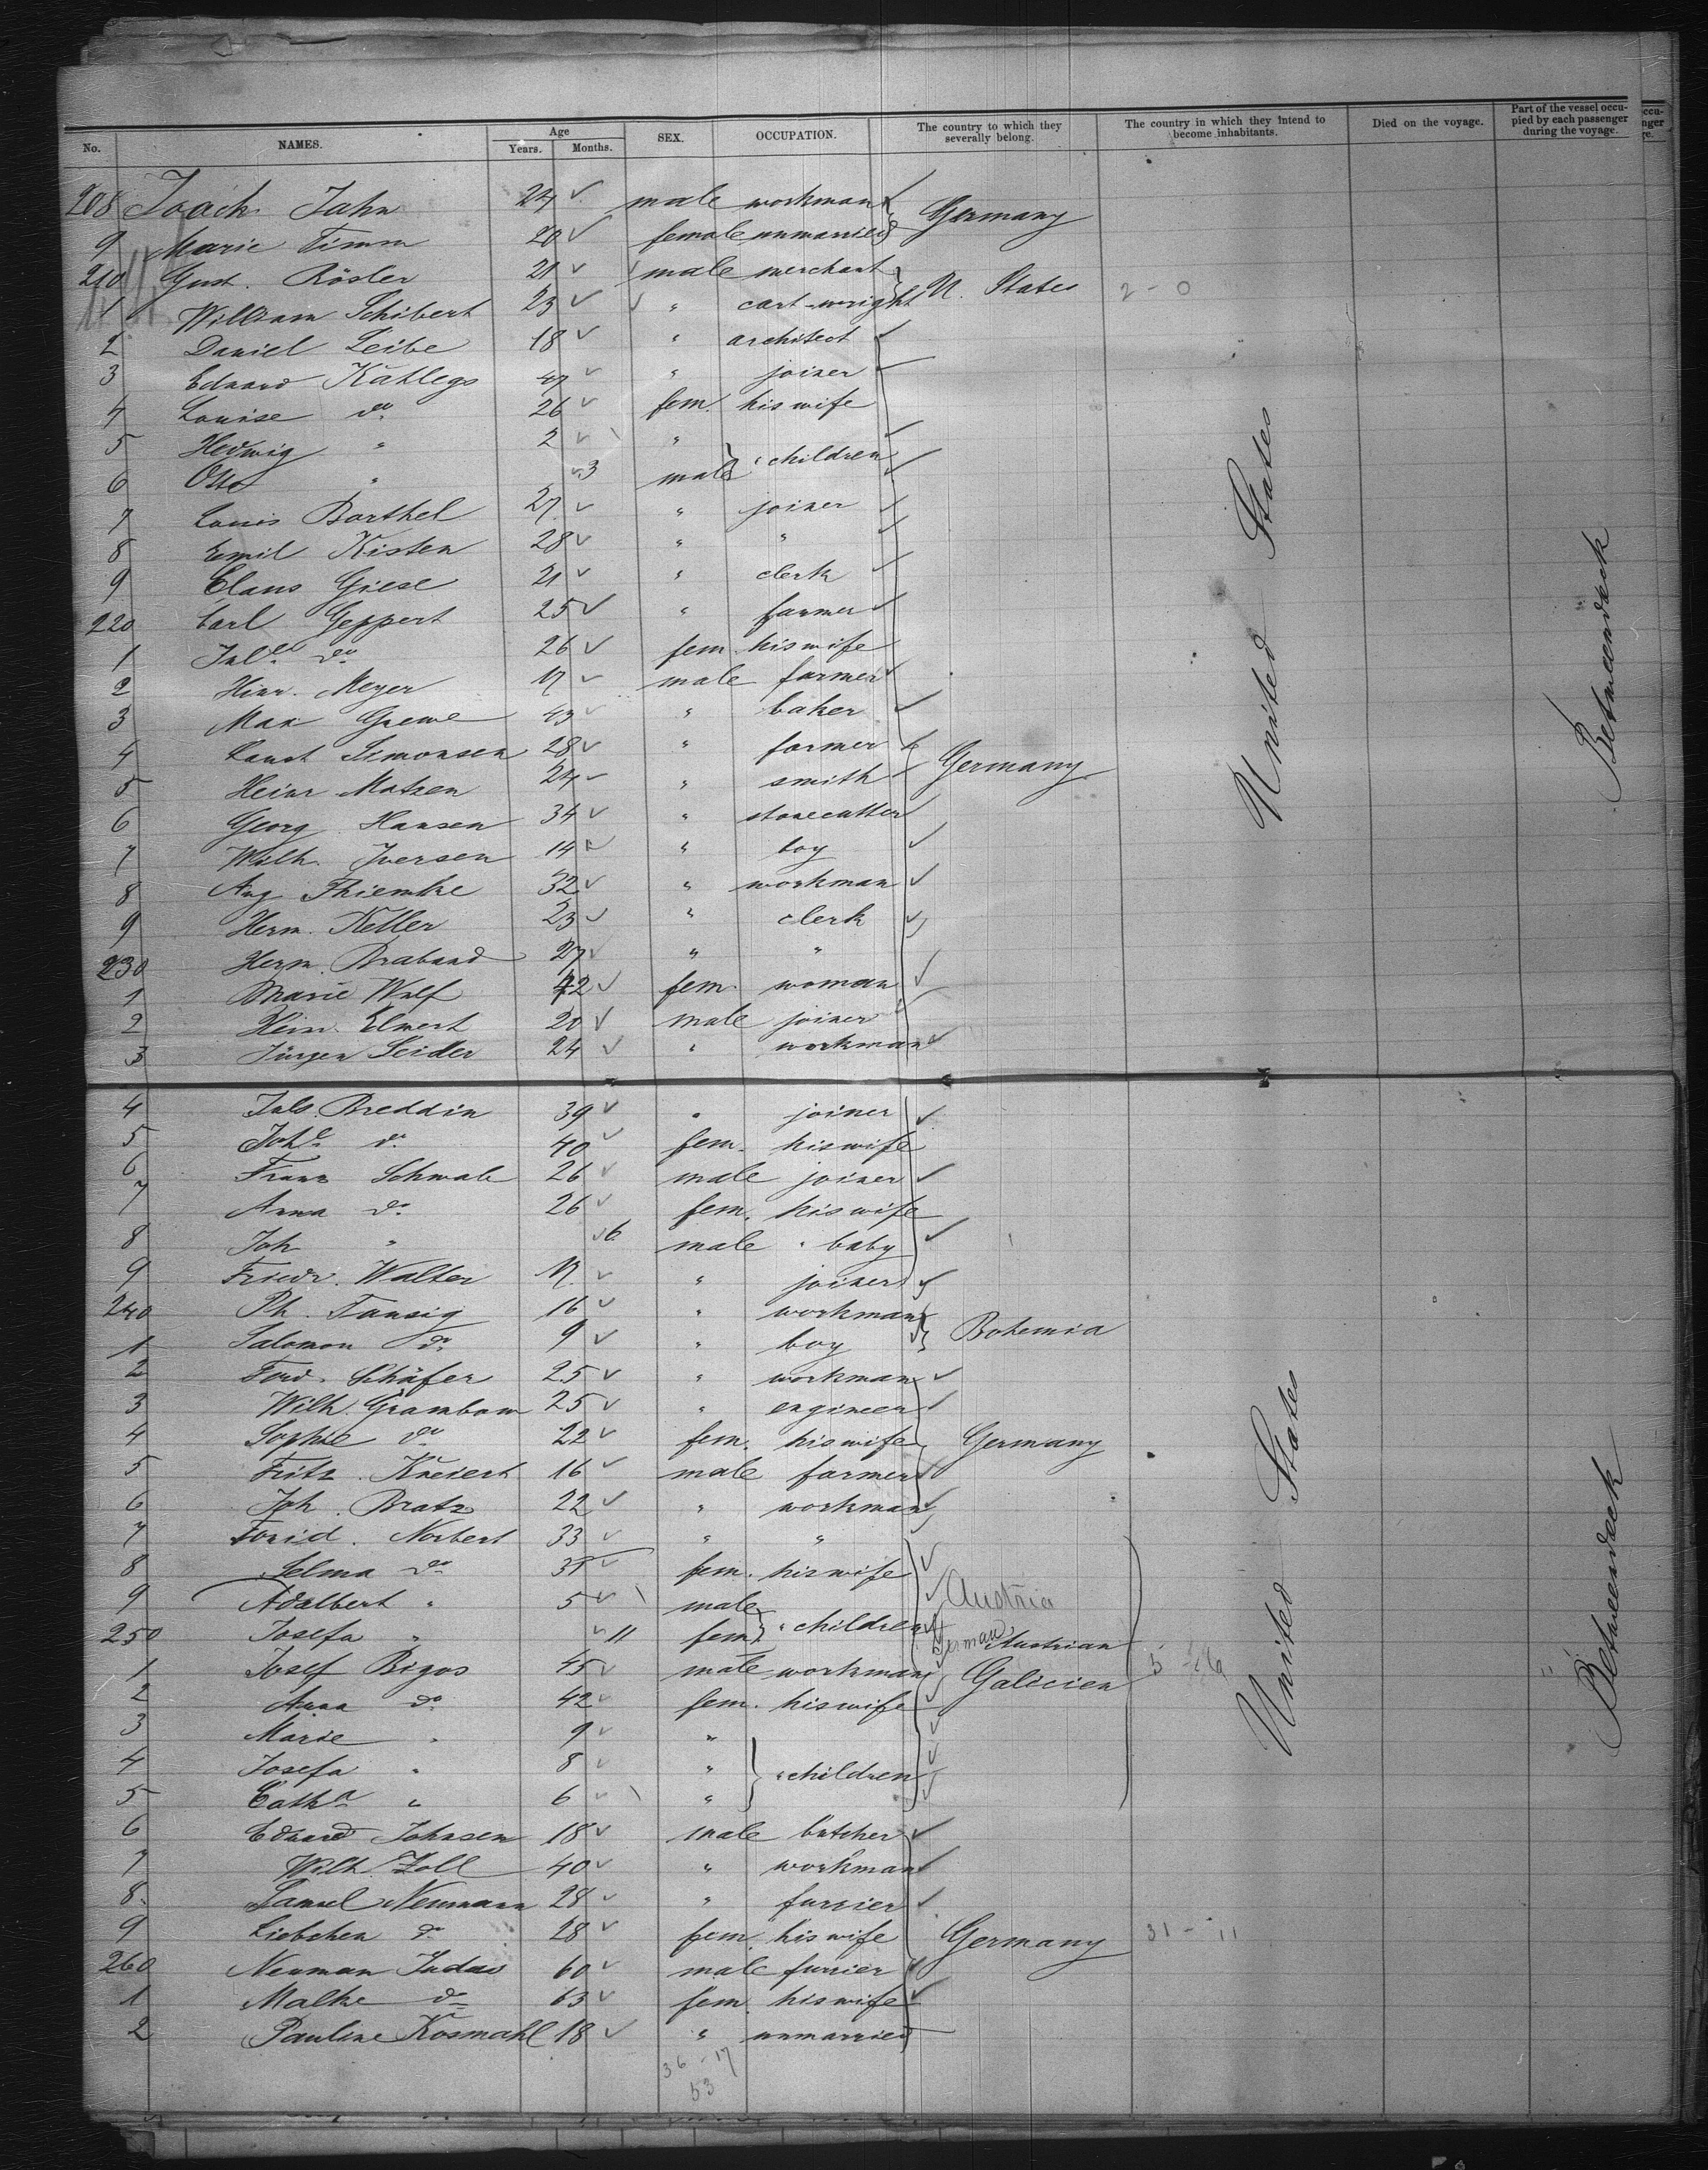 No. NAMES. Age Years. Months. SEX. OCCUPATION. The country to which they severally belong. The country in which they intend to become inhabitants. Died on the voyage. Part of the vessel occupied by each passenger during the voyage.
208 Joach Jahn 24 male workman Germany
9 Marie Timm 20 female unmarried
210 Gust. Rösler 21 male merchant U. States 2 - 0
1 William Schibert 23 " cart-wright
2 Daniel Leibe 18 " architect
3 Eduard 47 " joiner
4 Louise do 26 fem. his wife
5 Hedwig " 2 " children
6 Otto " 3 male
7 Louis Barthel 27 " joiner
8 Emil Kisten 28 " "
9 Claus Giese 21 " clerk
220 Carl Geppert 25 " farmer
1 do 26 fem his wife
2 Hinr. Meyer 17 male farmer
3 Max Grewe 43 " baker
4 Simonsen 28 " farmer Germany
5 Heinr Matzen 24 " smith
6 Georg Hansen 34 " stonecutter
7 Wilh. Iversen 14 " boy
8 Aug Thiemke 32 " workman
9 Herm. Keller 23 " clerk
230 Herm. Braband 27 " "
1 Marie Wulf 42 fem. woman
2 Heinr. Elwert 20 male joiner
3 Jürgen Seidler 24 " workman
United States
Betweendeck
4 Juls. Breddin 39 " joiner
5 Johe do 40 fem. his wife
6 Franz Schwab 26 male joiner
7 Anna do 26 fem. his wife
8 Joh " 6 male " baby
9 Friedr. Walter 17 " joiner
240 Ph. Tausig 16 " workman Bohemia
1 Salomon do 9 " boy
2 Ferd. Schäfer 25 " workman
3 Wilh. Grambow 25 " engineer
4 Sophie do 22 fem. his wife Germany
5 Fritz Kneiert 16 male farmer
6 Joh. Bratz 22 " workman
7 Norbert 33 " "
8 Selma do 31 fem. his wife
9 Adalbert " 5 male " children Austria
250 Josefa " 11 fem German Austrian
1 Josef Bigos 45 male workman Galicien 5
2 Anna do 42 fem. his wife
3 Marie " 9 "
4 Josefa " 8 " " children
5 Catha " 6 "
6 Eduard Johnsen 18 male butcher
7 Wilh. Zoll 40 " workman
8 Samuel Neumann 28 " furrier
9 Liebchen do 28 fem. his wife Germany 31 - 11
260 Neuman Judas 60 male furrier
1 Malke do 63 fem. his wife
2 Pauline Kosmahl 18 " unmarried
United States
Betweendeck
36 - 17
53